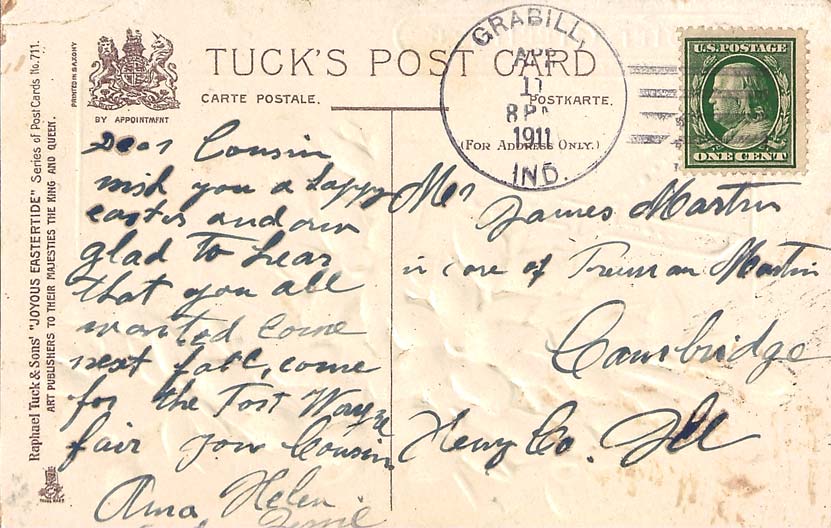 Raphael Tuck & Sons' "JOYOUS EASTERTIDE" Series of Post Cards No. 711.
ART PUBLISHERS TO THEIR MAJESTIES THE KING AND QUEEN.
PRINTED IN SAXONY
BY APPOINTMENT
TUCK'S POST CARD
CARTE POSTALE.
POSTKARTE.
(FOR ADDRESS ONLY.)
GRABILL,
APR
11
8 P
1911
IND.
U.S. POSTAGE
ONE CENT
Dear Cousin
wish you a happy
easter and am
glad to hear
that you all
wanted come
next fall, come
for the Fort Wayne
fair your Cousin
Anna Helen
Mr James Martin
in care of Truman Martin
Cambridge
Henry Co. Ill